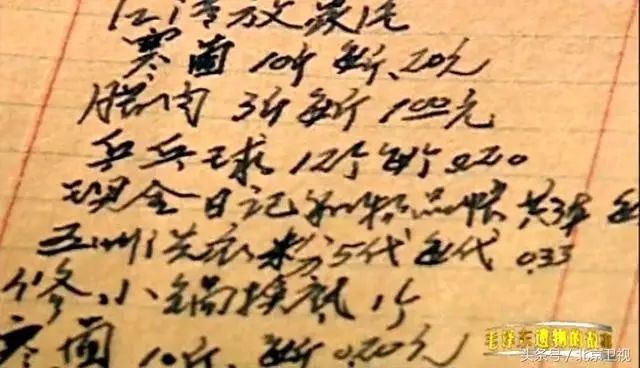 江青放
寒菌 10斤 每斤.20元
腊肉 3斤 每斤 1.00元
乒乓球 12个 每个 0.20
现金日记和物品帐 共3本 每
五洲洗衣粉 5代 每代 0.33
修小锅换底 1个
寒菌 10斤 每斤 0.20元
毛泽东遗物的故事
头条号/北京卫视